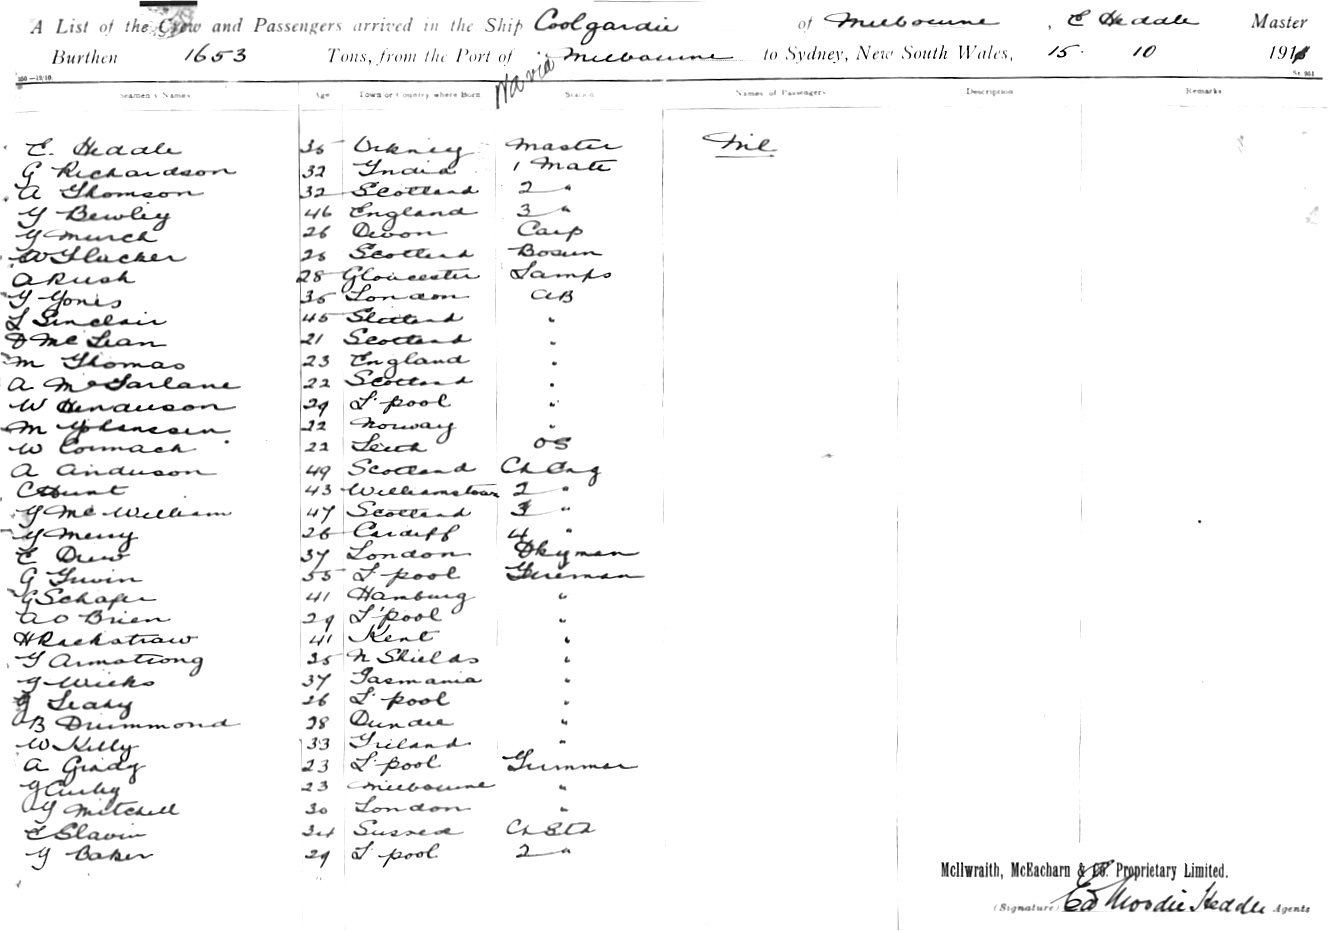 A List of the Crew and Passengers arrived in the Ship Coolgardie of Melbourne, E Heddle Master
Burthen 1653 Tons, from the Port of Melbourne to Sydney, New South Wales, 15 10 1911
Seamen's Names Age Town or Country where Born Station Names of Passengers Description Remarks
E. Heddle 35 Orkney Master Nil
G Richardson 32 India 1 Mate
A Thomson 32 Scotland 2 "
J Bewley 46 England 3 "
J Murch 26 Devon Carp
W Flucker 25 Scotland Bosun
A Rush 28 Gloucester Lamps
J Jones 35 London AB
L Sinclair 45 Scotland "
D McLean 21 Scotland "
M Thomas 23 England "
A McFarlane 22 Scotland "
W Henderson 29 L'pool "
M Johanssen 22 Norway "
W Cormack 22 Leith OS
A Anderson 49 Scotland Ch Eng
C Hunt 43 Williamstown 2 "
J McWilliam 47 Scotland 3 "
J Merry 26 Cardiff 4 "
E Drew 37 London Dkyman
G Irwin 55 L'pool Fireman
G Schafer 41 Hamburg "
A O Brien 29 L'pool "
H Rackstraw 41 Kent "
J Armstrong 35 N Shields "
J Wicks 37 Tasmania "
J Leahy 26 L'pool "
B Drummond 28 Dundee "
W Kelly 33 Ireland "
A Grady 23 L'pool Trimmer
J Curley 23 Melbourne "
J Mitchell 30 London "
E Slavin 34 Sussex Ch Std
J Baker 29 L'pool 2 "
McIlwraith, McEacharn & Co. Proprietary Limited.
(Signature) Ed Moodie Heddle Agents